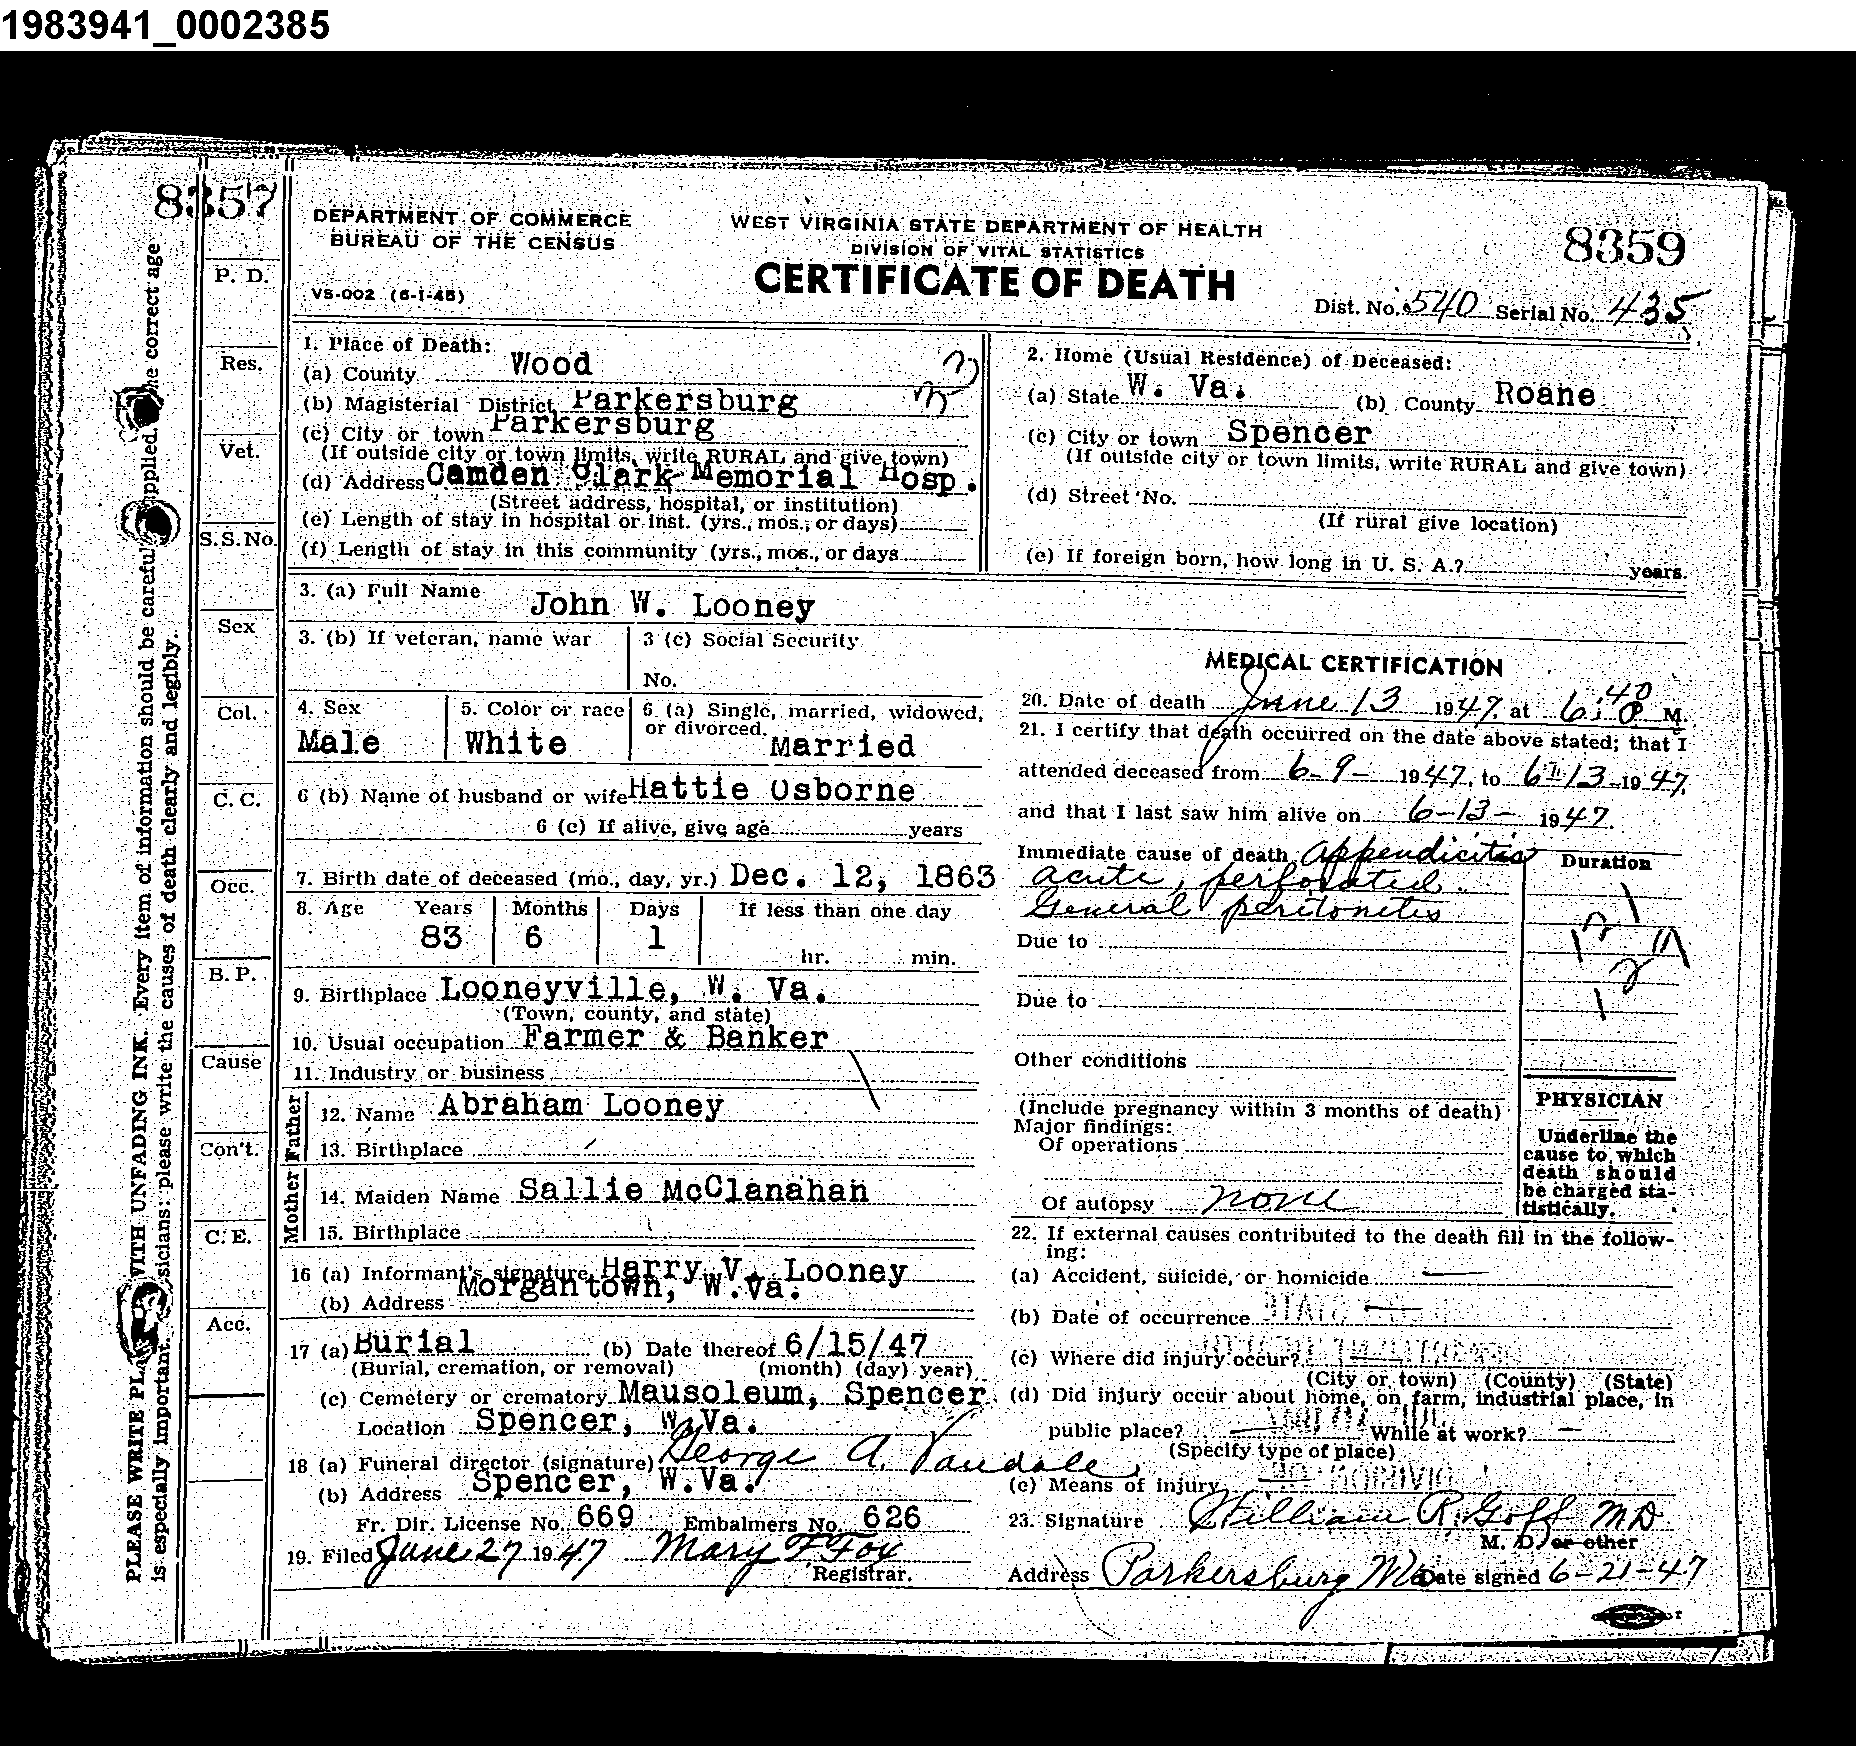 1983941_0002385
8357
DEPARTMENT OF COMMERCE
BUREAU OF THE CENSUS
VS-002 (6-1-45)
WEST VIRGINIA STATE DEPARTMENT OF HEALTH
DIVISION OF VITAL STATISTICS
CERTIFICATE OF DEATH
8359
Dist. No. 540 Serial No. 435
PLEASE WRITE WITH UNFADING INK. Every item of information should be supplied correct age
is especially important. please write the causes of death clearly and legibly.
P. D.
Res.
Vet.
S.S.No.
Sex
Col.
C. C.
Occ.
B. P.
Cause
Con't.
C. E.
Acc.
1. Place of Death:
(a) County Wood
(b) Magisterial District Parkersburg
(c) City or town Parkersburg
(If outside city or town limits, write RURAL and give town)
(d) Address Camden Clark Memorial Hosp.
(Street address, hospital, or institution)
(e) Length of stay in hospital or inst. (yrs., mos., or days)
(f) Length of stay in this community (yrs., mos., or days
2. Home (Usual Residence) of Deceased:
(a) State W. Va. (b) County Roane
(c) City or town Spencer
(If outside city or town limits, write RURAL and give town)
(d) Street No.
(If rural give location)
(e) If foreign born, how long in U. S. A.? years.
3. (a) Full Name John W. Looney
3. (b) If veteran, name war
3 (c) Social Security
No.
4. Sex
Male
5. Color or race
White
6 (a) Single, married, widowed,
or divorced. Married
6 (b) Name of husband or wife Hattie Osborne
6 (c) If alive, give age years
7. Birth date of deceased (mo., day, yr.) Dec. 12, 1863
8. Age Years Months Days If less than one day
83 6 1 hr. min.
9. Birthplace Looneyville, W. Va.
(Town, county, and state)
10. Usual occupation Farmer & Banker
11. Industry or business
Father
12. Name Abraham Looney
13. Birthplace
Mother
14. Maiden Name Sallie McClanahan
15. Birthplace
16 (a) Informant's signature Harry V. Looney
(b) Address Morgantown, W.Va.
17 (a) Burial (b) Date thereof 6/15/47
(Burial, cremation, or removal) (month) (day) year)
(c) Cemetery or crematory Mausoleum, Spencer
Location Spencer, W.Va.
18 (a) Funeral director (signature) George A. Vandale
(b) Address Spencer, W.Va.
Fr. Dir. License No. 669 Embalmers No. 626
19. Filed June 27 1947 Mary F. Fox
Registrar.
MEDICAL CERTIFICATION
20. Date of death June 13 1947. at 6:40 P M.
21. I certify that death occurred on the date above stated; that I
attended deceased from 6-9- 1947, to 6-13-1947,
and that I last saw him alive on 6-13- 1947.
Immediate cause of death Appendicitis
acute, perforated.
General peritonitis
Duration
Due to
Due to
Other conditions
(Include pregnancy within 3 months of death)
Major findings:
Of operations
Of autopsy none
PHYSICIAN
Underline the
cause to which
death should
be charged sta-
tistically.
22. If external causes contributed to the death fill in the follow-
ing:
(a) Accident, suicide, or homicide —
(b) Date of occurrence —
(c) Where did injury occur? —
(City or town) (County) (State)
(d) Did injury occur about home, on farm, industrial place, in
public place? — While at work? —
(Specify type of place)
(e) Means of injury —
23. Signature William R. Goff MD
M. D. or other
Address Parkersburg Date signed 6-21-47